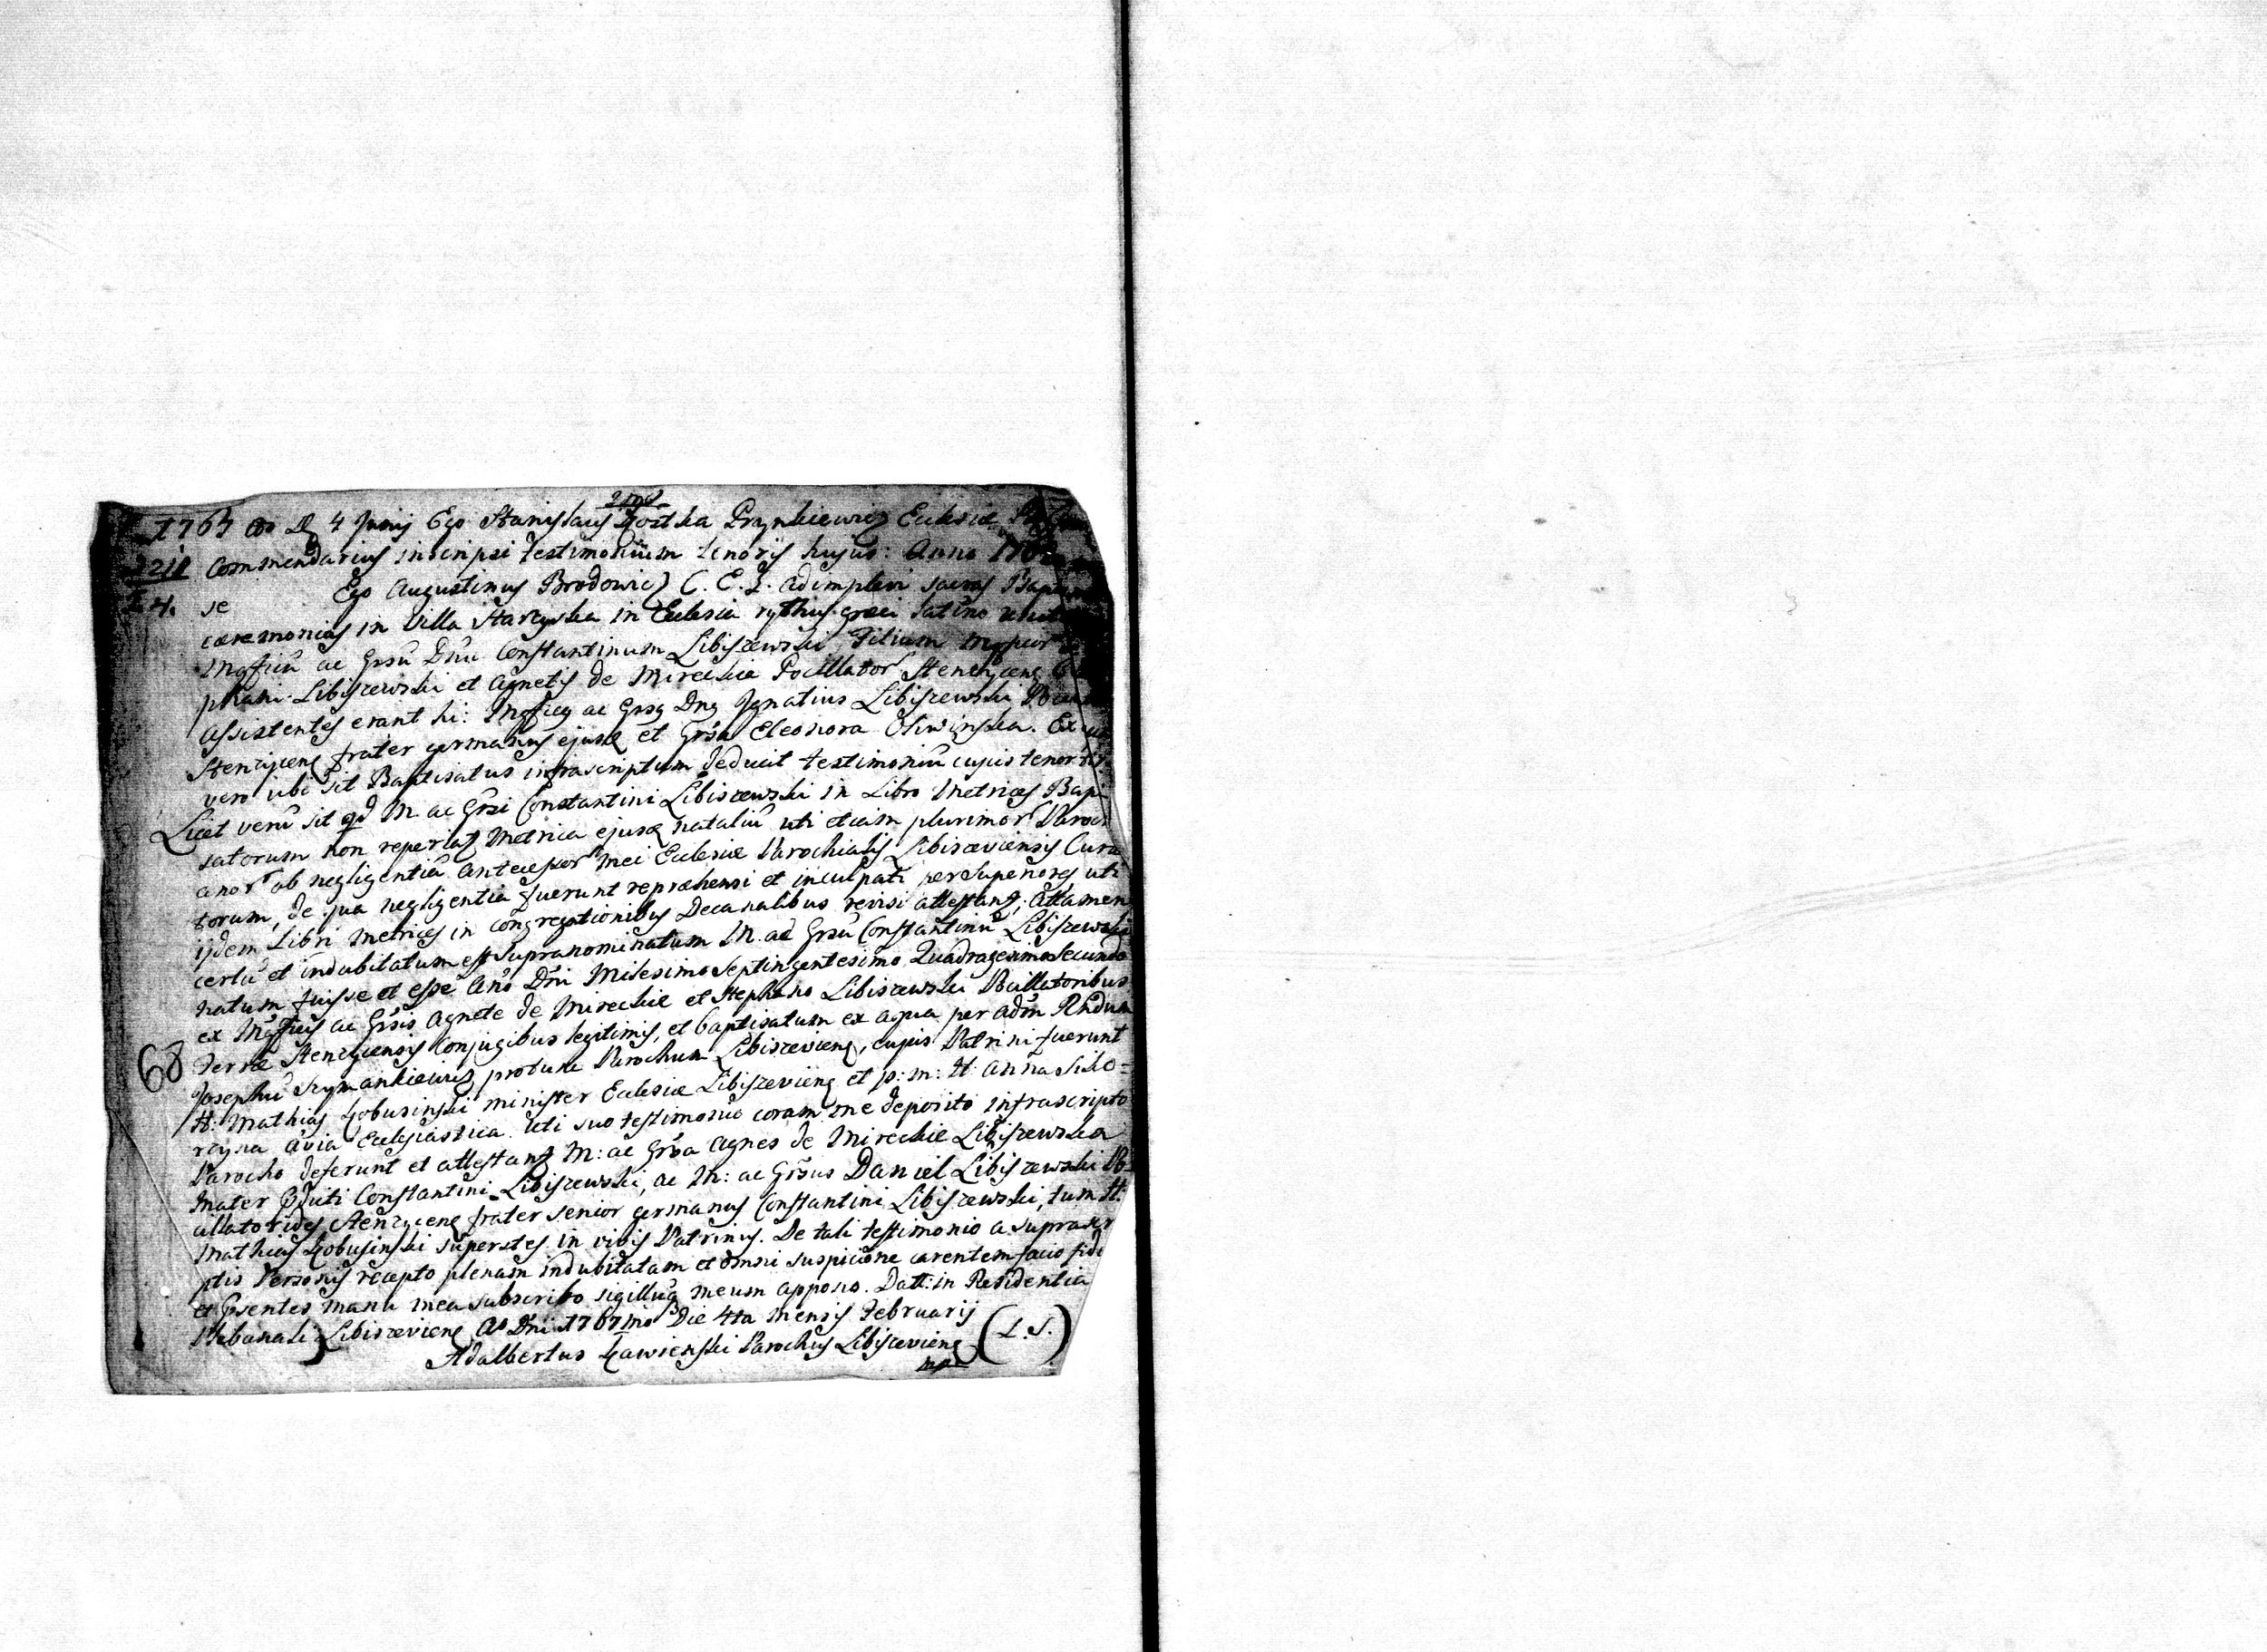 2mo
1767 Do D 4 Junij Ego Stanislaus Kostka Prynkiewicz Ecclesiæ
221 Commendarius inscripsi testimonium tenoris hujus: Anno
24. se Ego Augustinus Brodowicz C. E. L. adimplevi sacras
cæremonias in Villa Starzyska in Ecclesia rythus græci latino
Mgficu ac Grsu Dnu Constantinum Libiszewski Filium
Libiszewski et Agnetis de Mireckie Pocillator Stenzycens
Assistentes erant hi: Mgficg ac Grsg Dng Ignatius Libiszewski
Stenzycens frater germanus ejusd et Grsa Eleonora Oliwinska. Ex
vero ubi sit Baptisatus infrascriptum deducit testimoniu cujus tenor
Licet veru sit qd M. ac Grsi Constantini Libiszewski in Libro Metrices Bapti
satorum non reperiat Metrica ejusd nataliu uti etiam plurimor Paroch
anor ob negligentia antecessor mei Ecclesiæ Parochialis Libiszeviensis Cura
torum, de qua negligentia fuerunt repræhensi et inculpati per Superiores uti
ijdem Libri Metrices in congregationibus Decanalibus revisi attestant, attamen
certu et indubitatum est supranominatum M. ac Grsu Constantinu Libiszewski
natum fuisse et esse Ano Dni Milesimo Septingentesimo Quadragesimo Secundo
ex Mgficis ac Grsis Agnete de Mireckie et Stephano Libiszewski Pocillatoribus
Terræ Stenzyciensis Conjugibus legitimis, et baptisatum ex aqua per Adm Rndum
68 Josephu Szymankiewicz protunc Parochum Libiszeviens, cujus Patrini fuerunt
H: Mathias Łobusinski minister Ecclesiæ Libiszeviens et p: m: H: Anna Siko=
rzyna avia Ecclesiastica. Uti suo testimonio coram me deposito infrascripto
Parocho deferunt et attestant M: ac Grsa Agnes de Mireckie Libiszewska
Mater Constantini Libiszewski, ac M: ac Grsus Daniel Libiszewski Po
cillatorides Stenzycens frater senior germanus Constantini Libiszewski, tum H:
Mathias Łobusinski superstes in vivis Patrinus. De tali testimonio a suprascr
ptis Personis recepto plenam indubitatam et omni suspicione carentem facio fide
et psentes manu mea subscribo sigillug meum appono. Datt: in Residentia
Plebanali Libiszeviens Ao Dni 1767mo Die 4ta Mensis Februarij
Adalbertus Ławienski Parochus Libiszeviens (L.S.)
mp